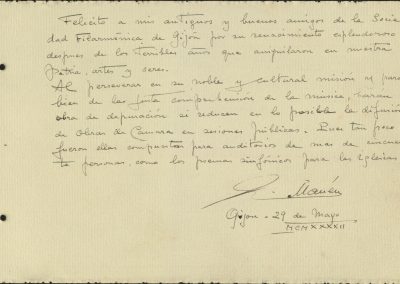 Felicito a mis antiguos y buenos amigos de la Socie
dad Filarmónica de Gijón por su renacimiento esplendoroso
despues de los terribles años que aniquilaron en nuestra
Patria, artes y seres.
Al perseverar en su noble y cultural misión y para
bien de la justa comprensión de la música, harán
obra de depuración si reducen en lo posible la difusión
de Obras de Camara en sesiones públicas. Pues tan poco
fueron ellas compuestas para auditorios de mas de cincuen
ta personas, como los poemas sinfónicos para las Iglesias
Manén
Gijon - 29 de Mayo
MCMXXXXII